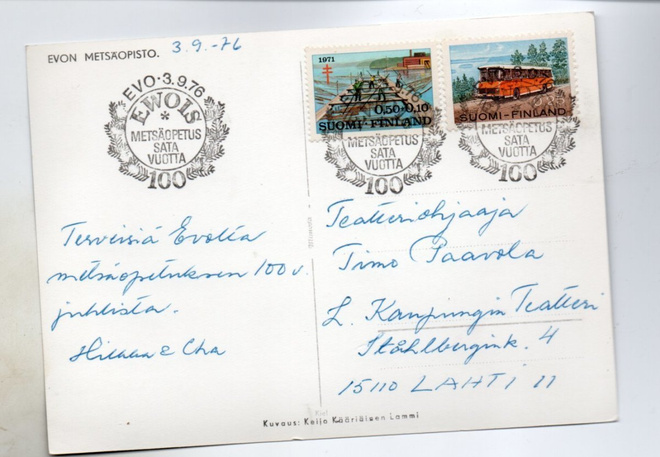 EVON METSÄOPISTO. 3.9.-76
EVO·3.9.76
EWOIS
*
METSÄOPETUS
SATA
VUOTTA
100
1971
0,50+0,10
SUOMI-FINLAND
SUOMI-FINLAND
METSÄOPETUS
SATA
VUOTTA
100
METSÄOPETUS
SATA
VUOTTA
100
Terveisiä Evolta
metsäopetuksen 100 v.
juhlista.
Teatteriohjaaja
Timo Paavola
L. Kaupungin Teatteri
Ståhlbergink. 4
15110 LAHTI 11
Kuvaus: Keijo Kääriäisen Lammi